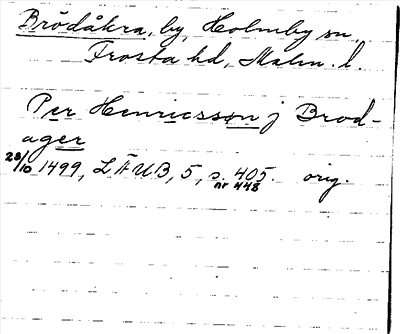 Brödåkra, by, Holmby sn,
Frosta hd, Malm. l.
Per Henricsson j Brod-
ager
28/10 1499, LÄUB, 5, s. 405. orig.
nr 448